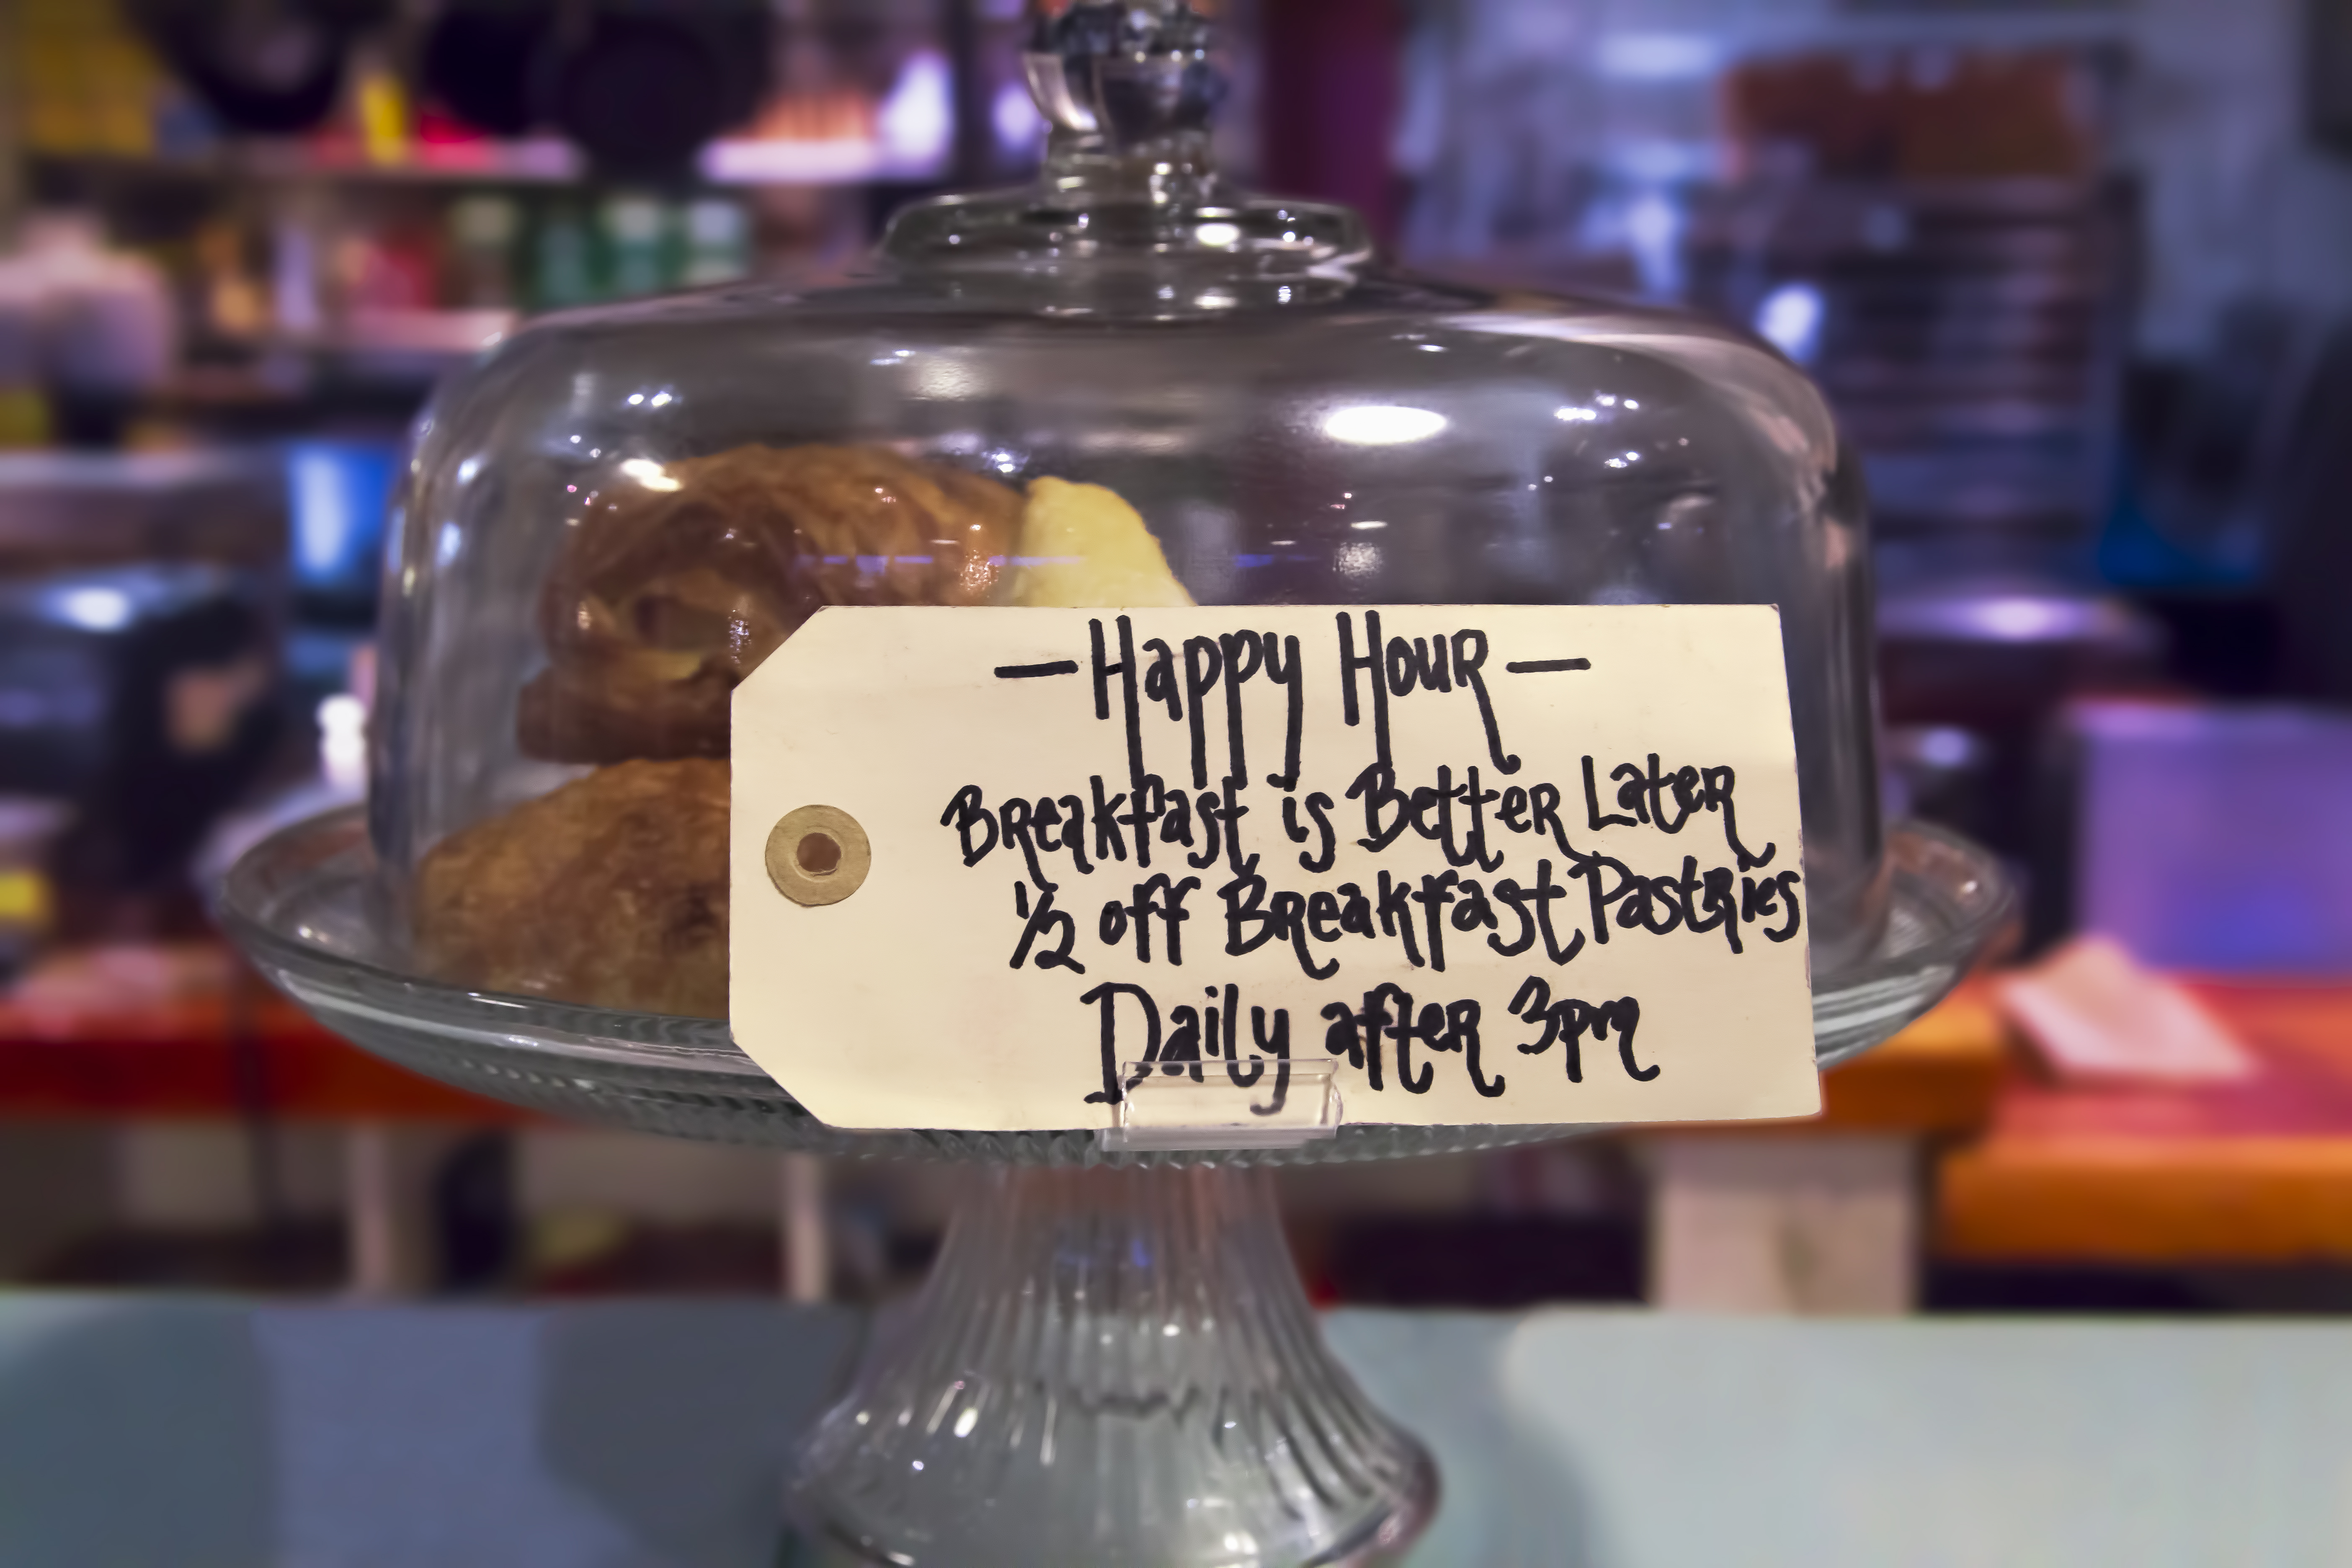 —Happy Hour—
Breakfast is Better Later
1/2 off Breakfast Pastries
Daily after 3pm